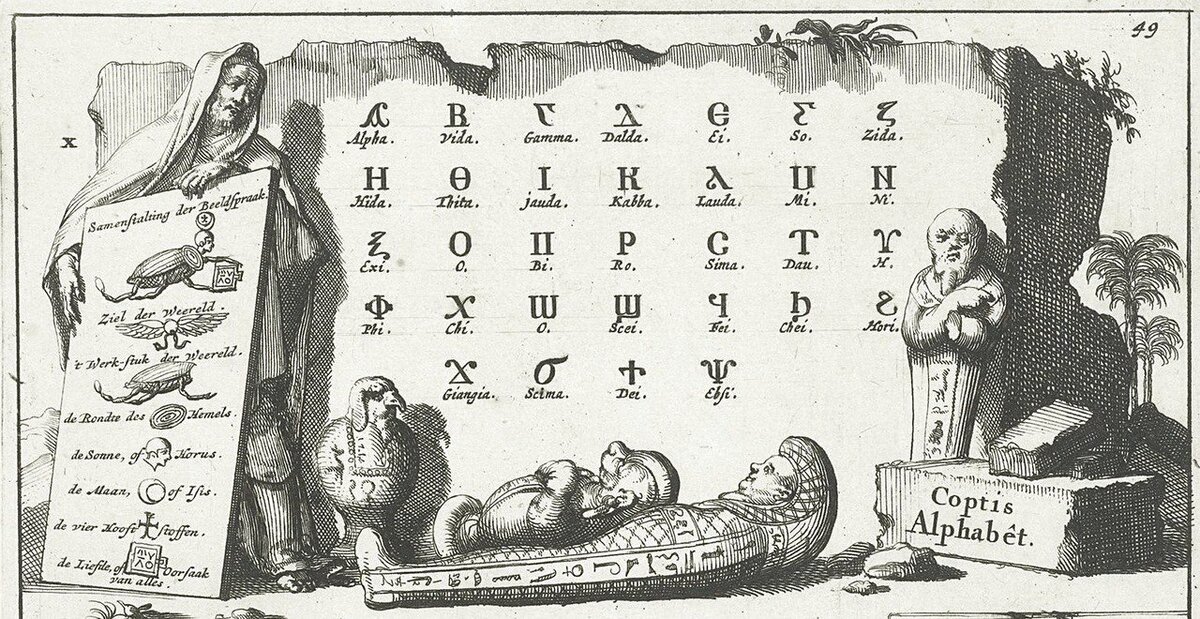 49
x
Ⲁ Ⲃ Ⲅ Ⲇ Ⲉ Ⲋ Ⲍ
Alpha. Vida. Gamma. Dalda. Ei. So. Zida.
Ⲏ Ⲑ Ⲓ Ⲕ Ⲗ Ⲙ Ⲛ
Hida. Thita. jauda. Kabba. Lauda. Mi. Ni.
Ⲝ Ⲟ Ⲡ Ⲣ Ⲥ Ⲧ Ⲩ
Exi. O. Bi. Ro. Sima. Dau. H.
Ⲫ Ⲭ Ⲱ Ϣ Ϥ Ϧ Ϩ
Phi. Chi. O. Scei. Fei. Chei. Hori.
Ϫ Ϭ Ϯ Ⲯ
Giangia. Scima. Dei. Ebsi.
Samenstalting der Beeldspraak.
Ziel der Weereld.
't Werk-stuk der Weereld.
de Rondte des Hemels.
de Sonne, of Horus.
de Maan, of Isis.
de vier Hooft stoffen.
de Liefde, of Oorsaak
van alles.
Coptis
Alphabêt.